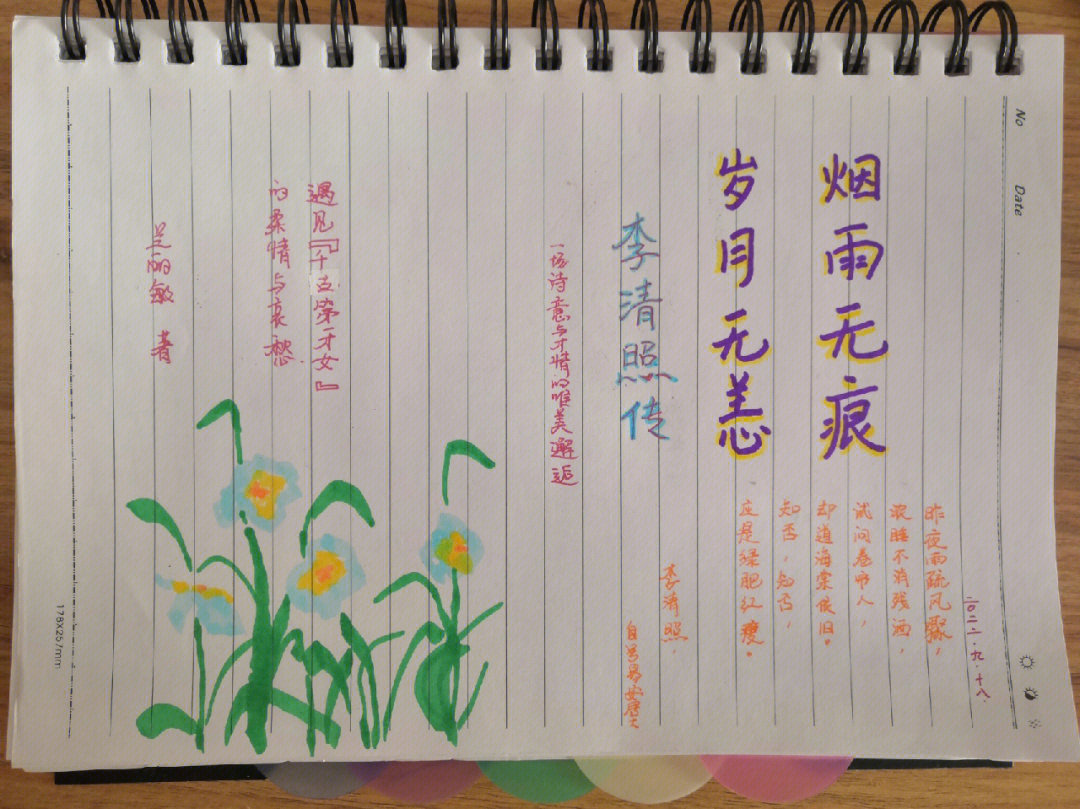 No Date
二〇二一.九.十八
烟雨无痕
昨夜雨疏风骤，
浓睡不消残酒，
试问卷帘人，
却道海棠依旧。
知否，知否，
应是绿肥红瘦。
岁月无恙
李清照，
自号易安居士
李清照传
一场诗意与才情的唯美邂逅
遇见『千古第一才女』
的柔情与哀愁
兰丽敏 著
178X257mm